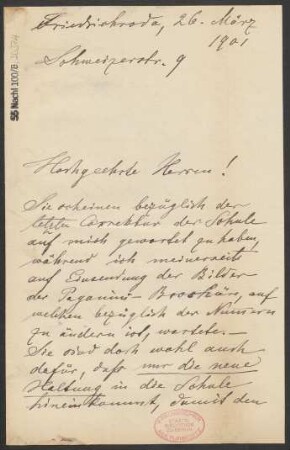 Friedrichroda, 26. März
1901
Schweizerstr. 9
55 Nachl 100/B
Hochgeehrte Herren!
Sie scheinen bezüglich der
letzten Correktur der Schule
auf mich gewartet zu haben,
während ich meinerseits
auf Einsendung der Bilder
der Paganini-Broschüre, auf
welchen bezüglich der Numern
zu ändern ist, wartete.
Sie sind doch wohl auch
dafür, daß nur die neue
Haltung in die Schule
hinein kommt, damit den